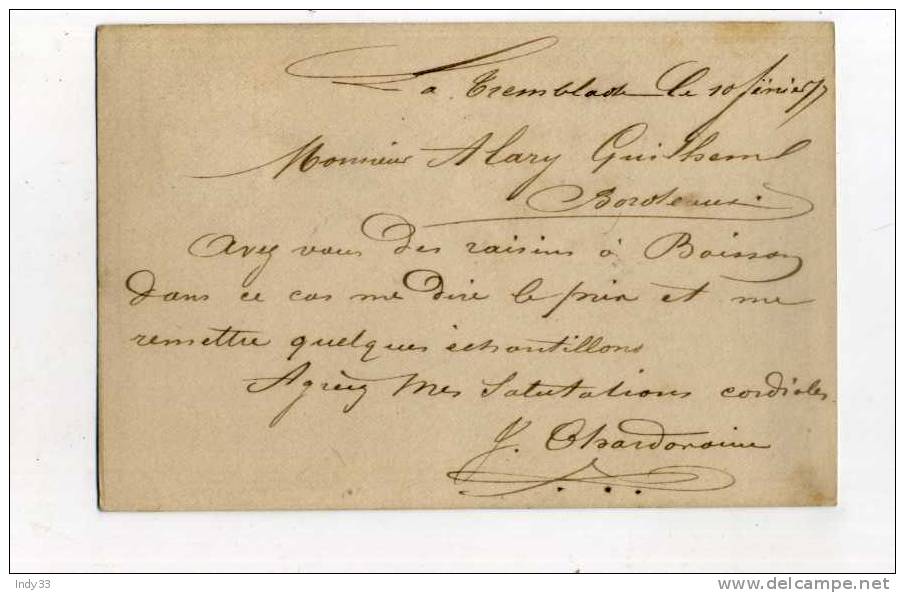 La Tremblade le 10 février 77
Monsieur Alary Guilhem
Bordeaux
Avez vous des raisins à Boisson
dans ce cas me dire le prix et me
remettre quelques échantillons
Agréez Mes Salutations cordiales
J.
Indy33
delcampe.net